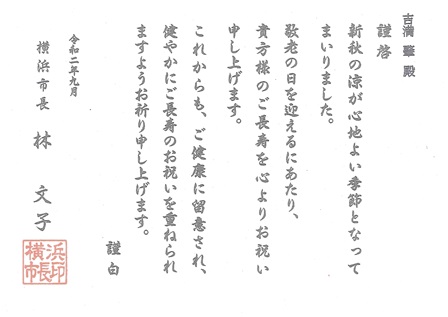 吉濱 肇 殿
謹啓
新秋の涼が心地よい季節となって
まいりました。
敬老の日を迎えるにあたり、
貴方様のご長寿を心よりお祝い
申し上げます。
これからも、ご健康に留意され、
健やかにご長寿のお祝いを重ねられ
ますようお祈り申し上げます。
謹白
令和二年九月
横浜市長 林 文子
横浜市長印